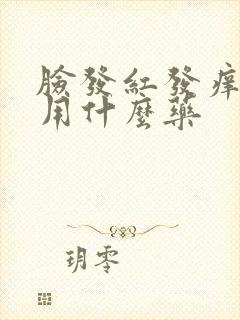 臉發紅發痒
用什麼藥
玥零